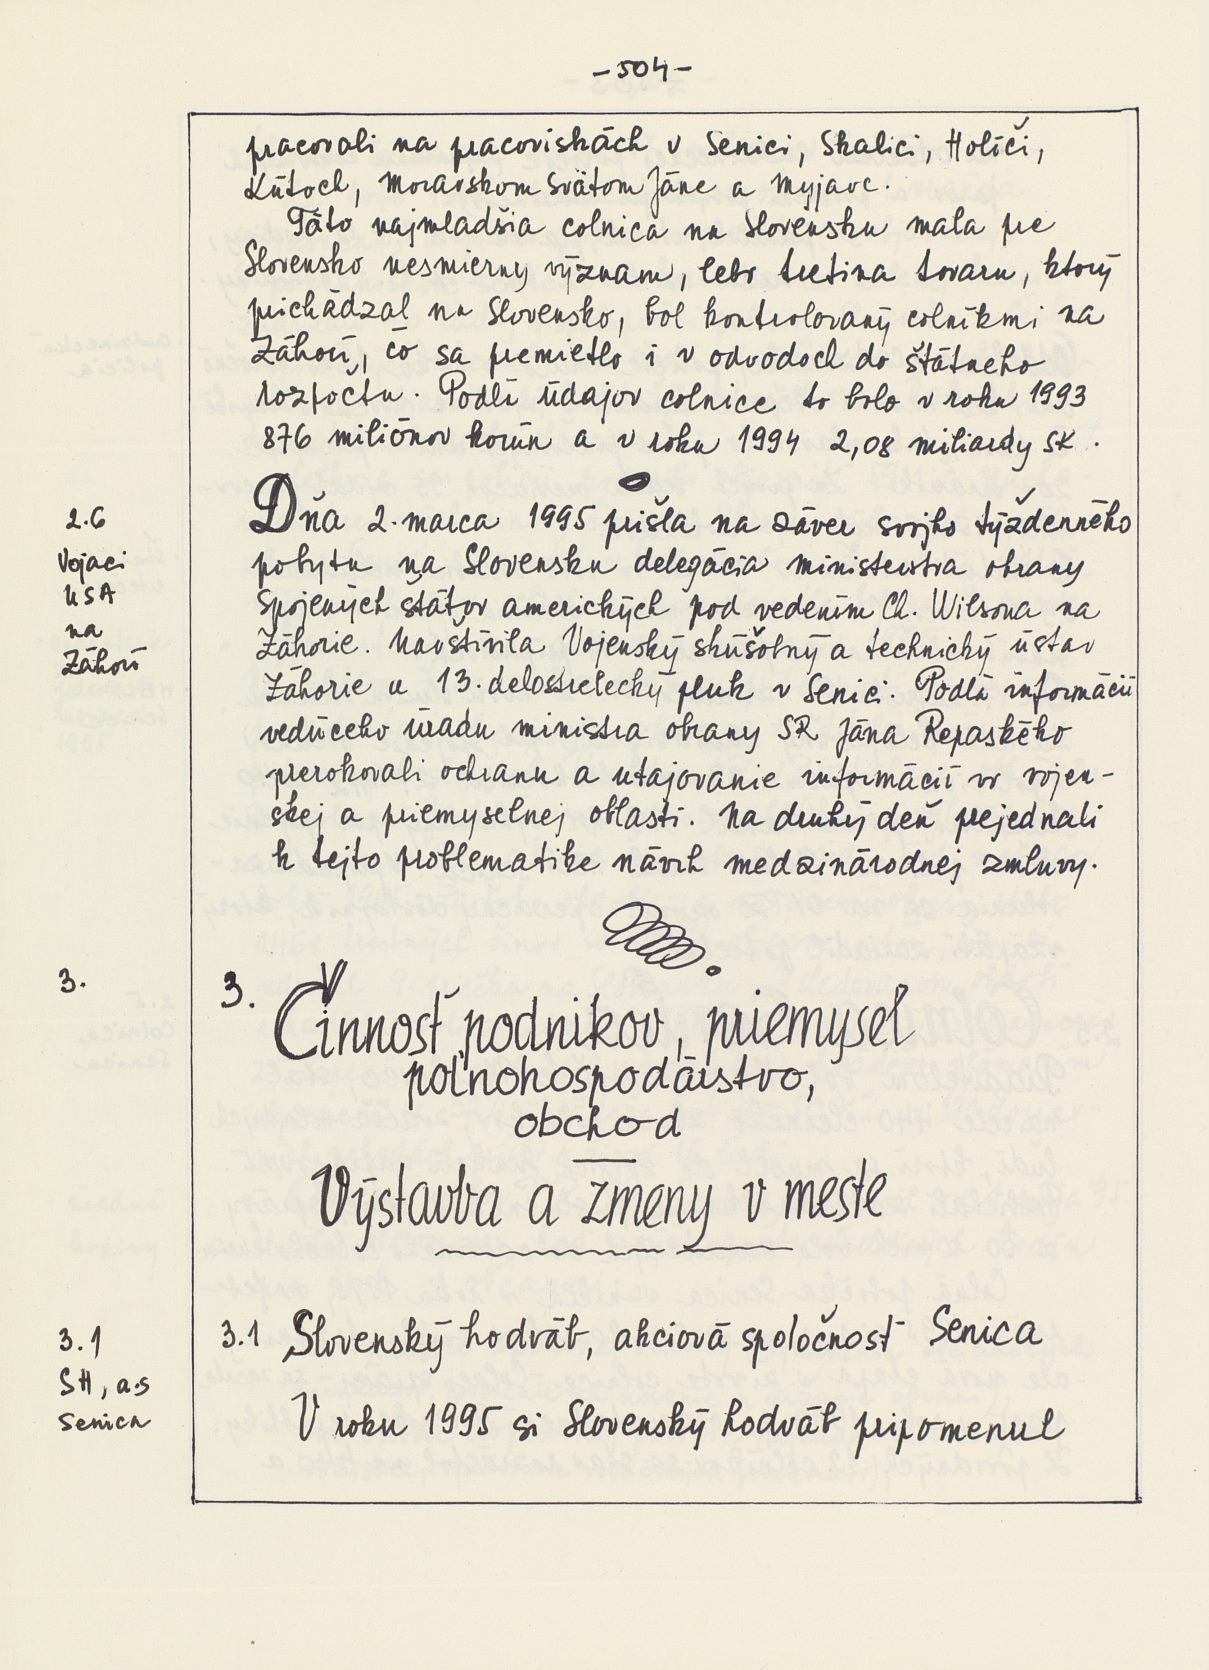 -504-
pracovali na pracoviskách v Senici, Skalici, Holíči,
Kútoch, Moravskom Svätom Jáne a Myjave.
Táto najmladšia colnica na Slovensku mala pre
Slovensko nesmierny význam, lebo tretina tovaru, ktorý
prichádzal na Slovensko, bol kontrolovaný colníkmi na
Záhorí, čo sa premietlo i v odvodoch do štátneho
rozpočtu. Podľa údajov colnice to bolo v roku 1993
876 miliónov korún a v roku 1994 2,08 miliardy SK.
2.6
Vojaci
USA
na
Záhorí
Dňa 2. marca 1995 prišla na záver svojho týždenného
pobytu na Slovensku delegácia ministerstva obrany
Spojených štátov amerických pod vedením Ch. Wilsona na
Záhorie. Navštívila Vojenský skúšobný a technický ústav
Záhorie a 13. delostrelecký pluk v Senici. Podľa informácií
vedúceho úradu ministra obrany SR Jána Repaského
prerokovali ochranu a utajovanie informácií vo vojen-
skej a priemyselnej oblasti. Na druhý deň prejednali
k tejto problematike návrh medzinárodnej zmluvy.
3.
3. Činnosť podnikov, priemysel
poľnohospodárstvo,
obchod
Výstavba a zmeny v meste
3.1
SH, a.s
Senica
3.1 Slovenský hodváb, akciová spoločnosť Senica
V roku 1995 si Slovenský hodváb pripomenul